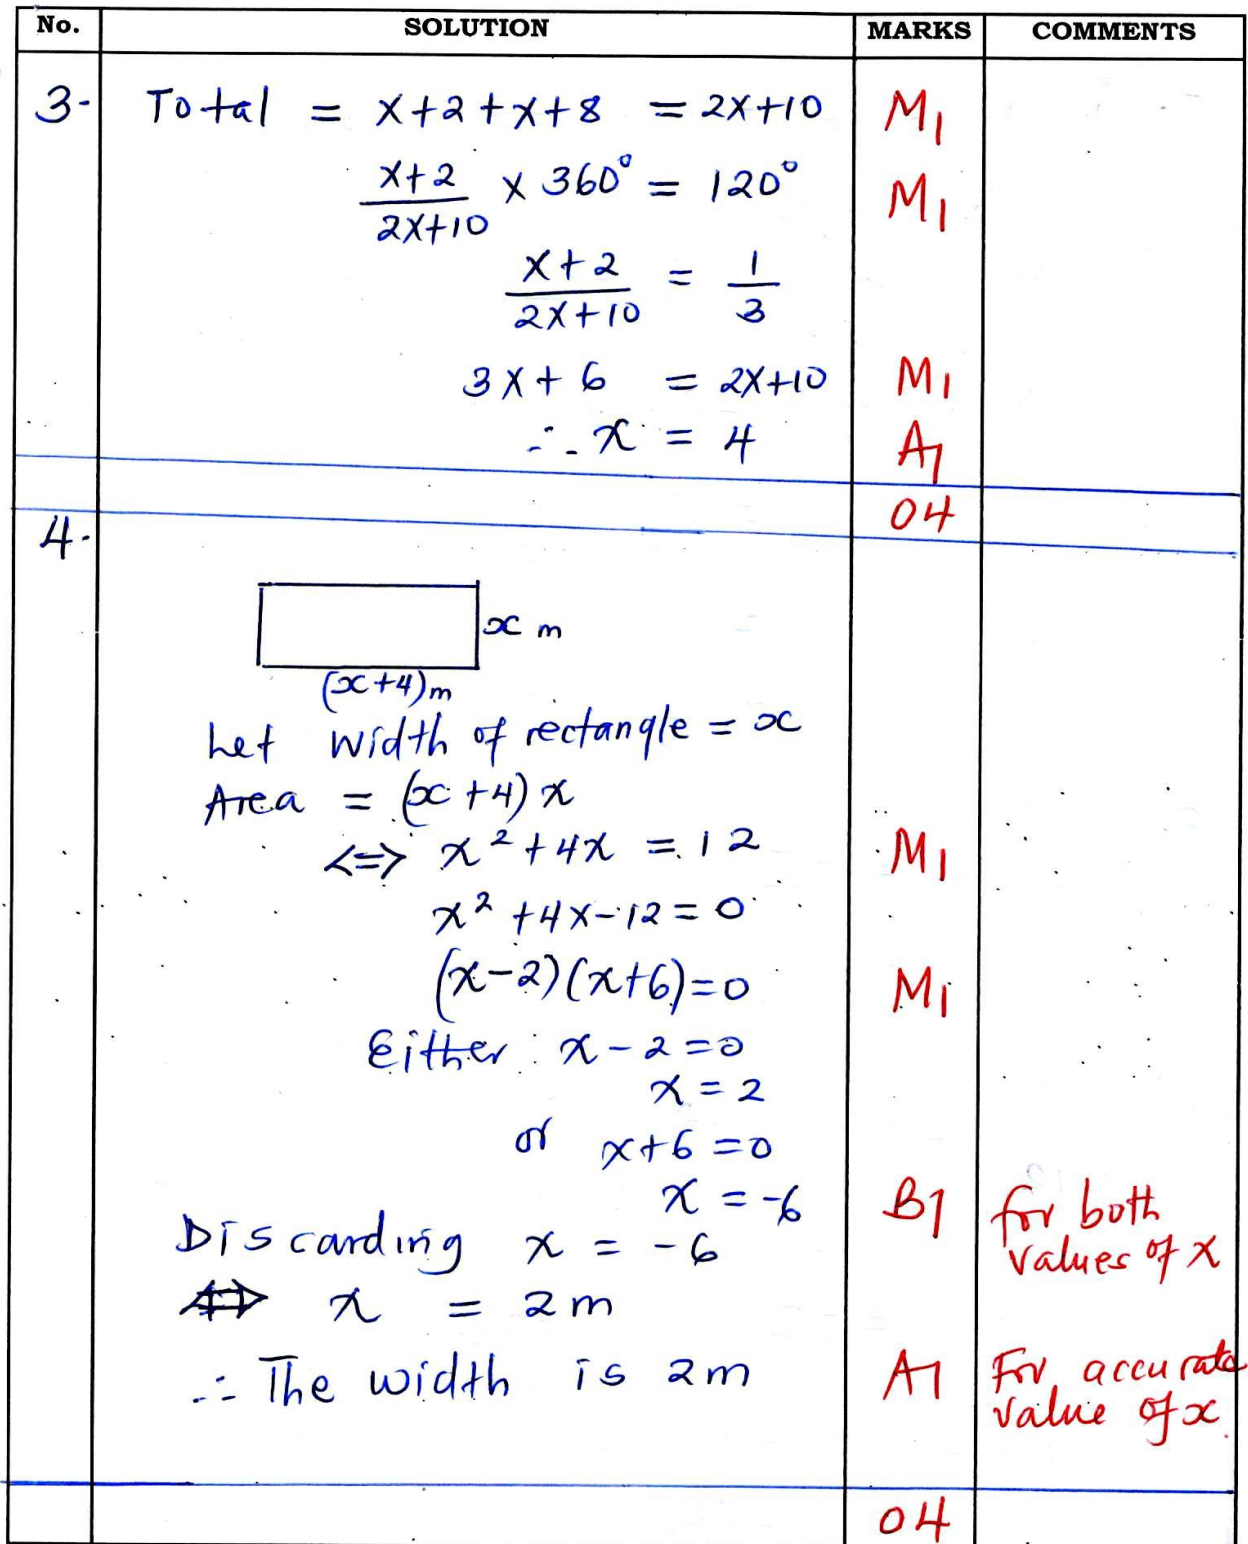 No. SOLUTION MARKS COMMENTS
3- Total = x+2+x+8 = 2x+10 M1
x+2/2x+10 × 360° = 120° M1
x+2/2x+10 = 1/3
3x+6 = 2x+10 M1
∴ x = 4 A1
04
4.
x m
(x+4)m
Let width of rectangle = x
Area = (x+4)x
<=> x²+4x = 12 M1
x²+4x-12=0
(x-2)(x+6)=0 M1
Either: x-2=0
x=2
or x+6=0
x=-6 B1 for both
values of x
Discarding x = -6
<=> x = 2m
∴ The width is 2m A1 For accurate
value of x.
04